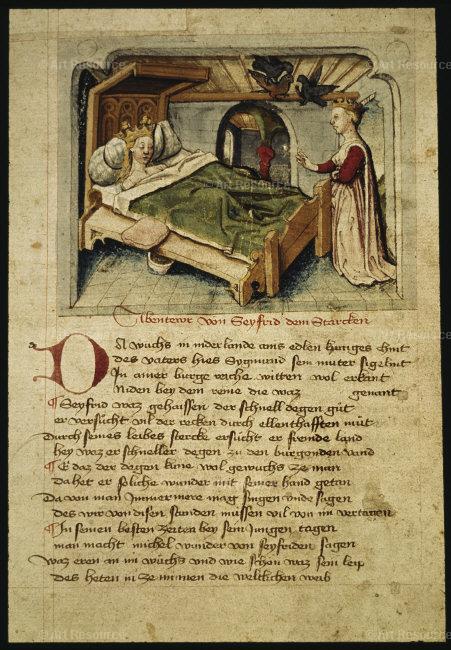 Abentewr von Seyfrid dem Starcken
DA wuchs in niderlande ains edlen kuniges chint
des vaters hies Sygmund sein muter sigelint
In ainer burge reiche witten wol erkant
Niden bey dem reine die waz genant
Seyfrid waz gehaissen der schnell degen gut
er versucht vil der recken durch ellenthafften mut
Durch seines leibes stercke ersucht er frende land
hey waz er schneller degen zu den burgonden vand
E daz der degen kune wol gewuchs ze man
Da het er soliche wunder mit seiner hand getan
Da von man Immer mere mag singen vnde sagen
des wir von disen stunden mussen vil von im vertagen
In seinen besten zeiten bey sein Jungen tagen
man macht michel wunder von seyfriden sagen
waz eren an im wuchs vnd wie schon waz sein leip
des heten in ze minen die weltlichen weib
© Art Resource